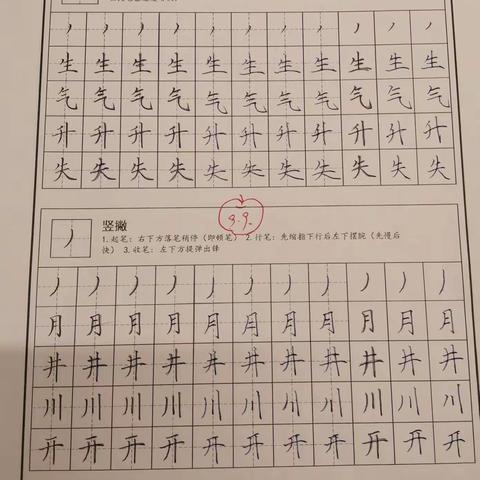 丿 丿 丿 丿 丿 丿 丿 丿 丿 丿 丿
生 生 生 生 生 生 生 生 生 生 生
气 气 气 气 气 气 气 气 气 气 气
升 升 升 升 升 升 升 升 升 升 升
失 失 失 失 失 失 失 失 失 失 失
9.9.
丿 竖撇
1.起笔：右下方落笔稍停（即顿笔） 2.行笔：先缩指下行后左下摆腕（先慢后
快） 3.收笔：左下方提弹出锋
丿 丿 丿 丿 丿 丿 丿 丿 丿 丿 丿
月 月 月 月 月 月 月 月 月 月 月
井 井 井 井 井 井 井 井 井 井 井
川 川 川 川 川 川 川 川 川 川 川
开 开 开 开 开 开 开 开 开 开 开